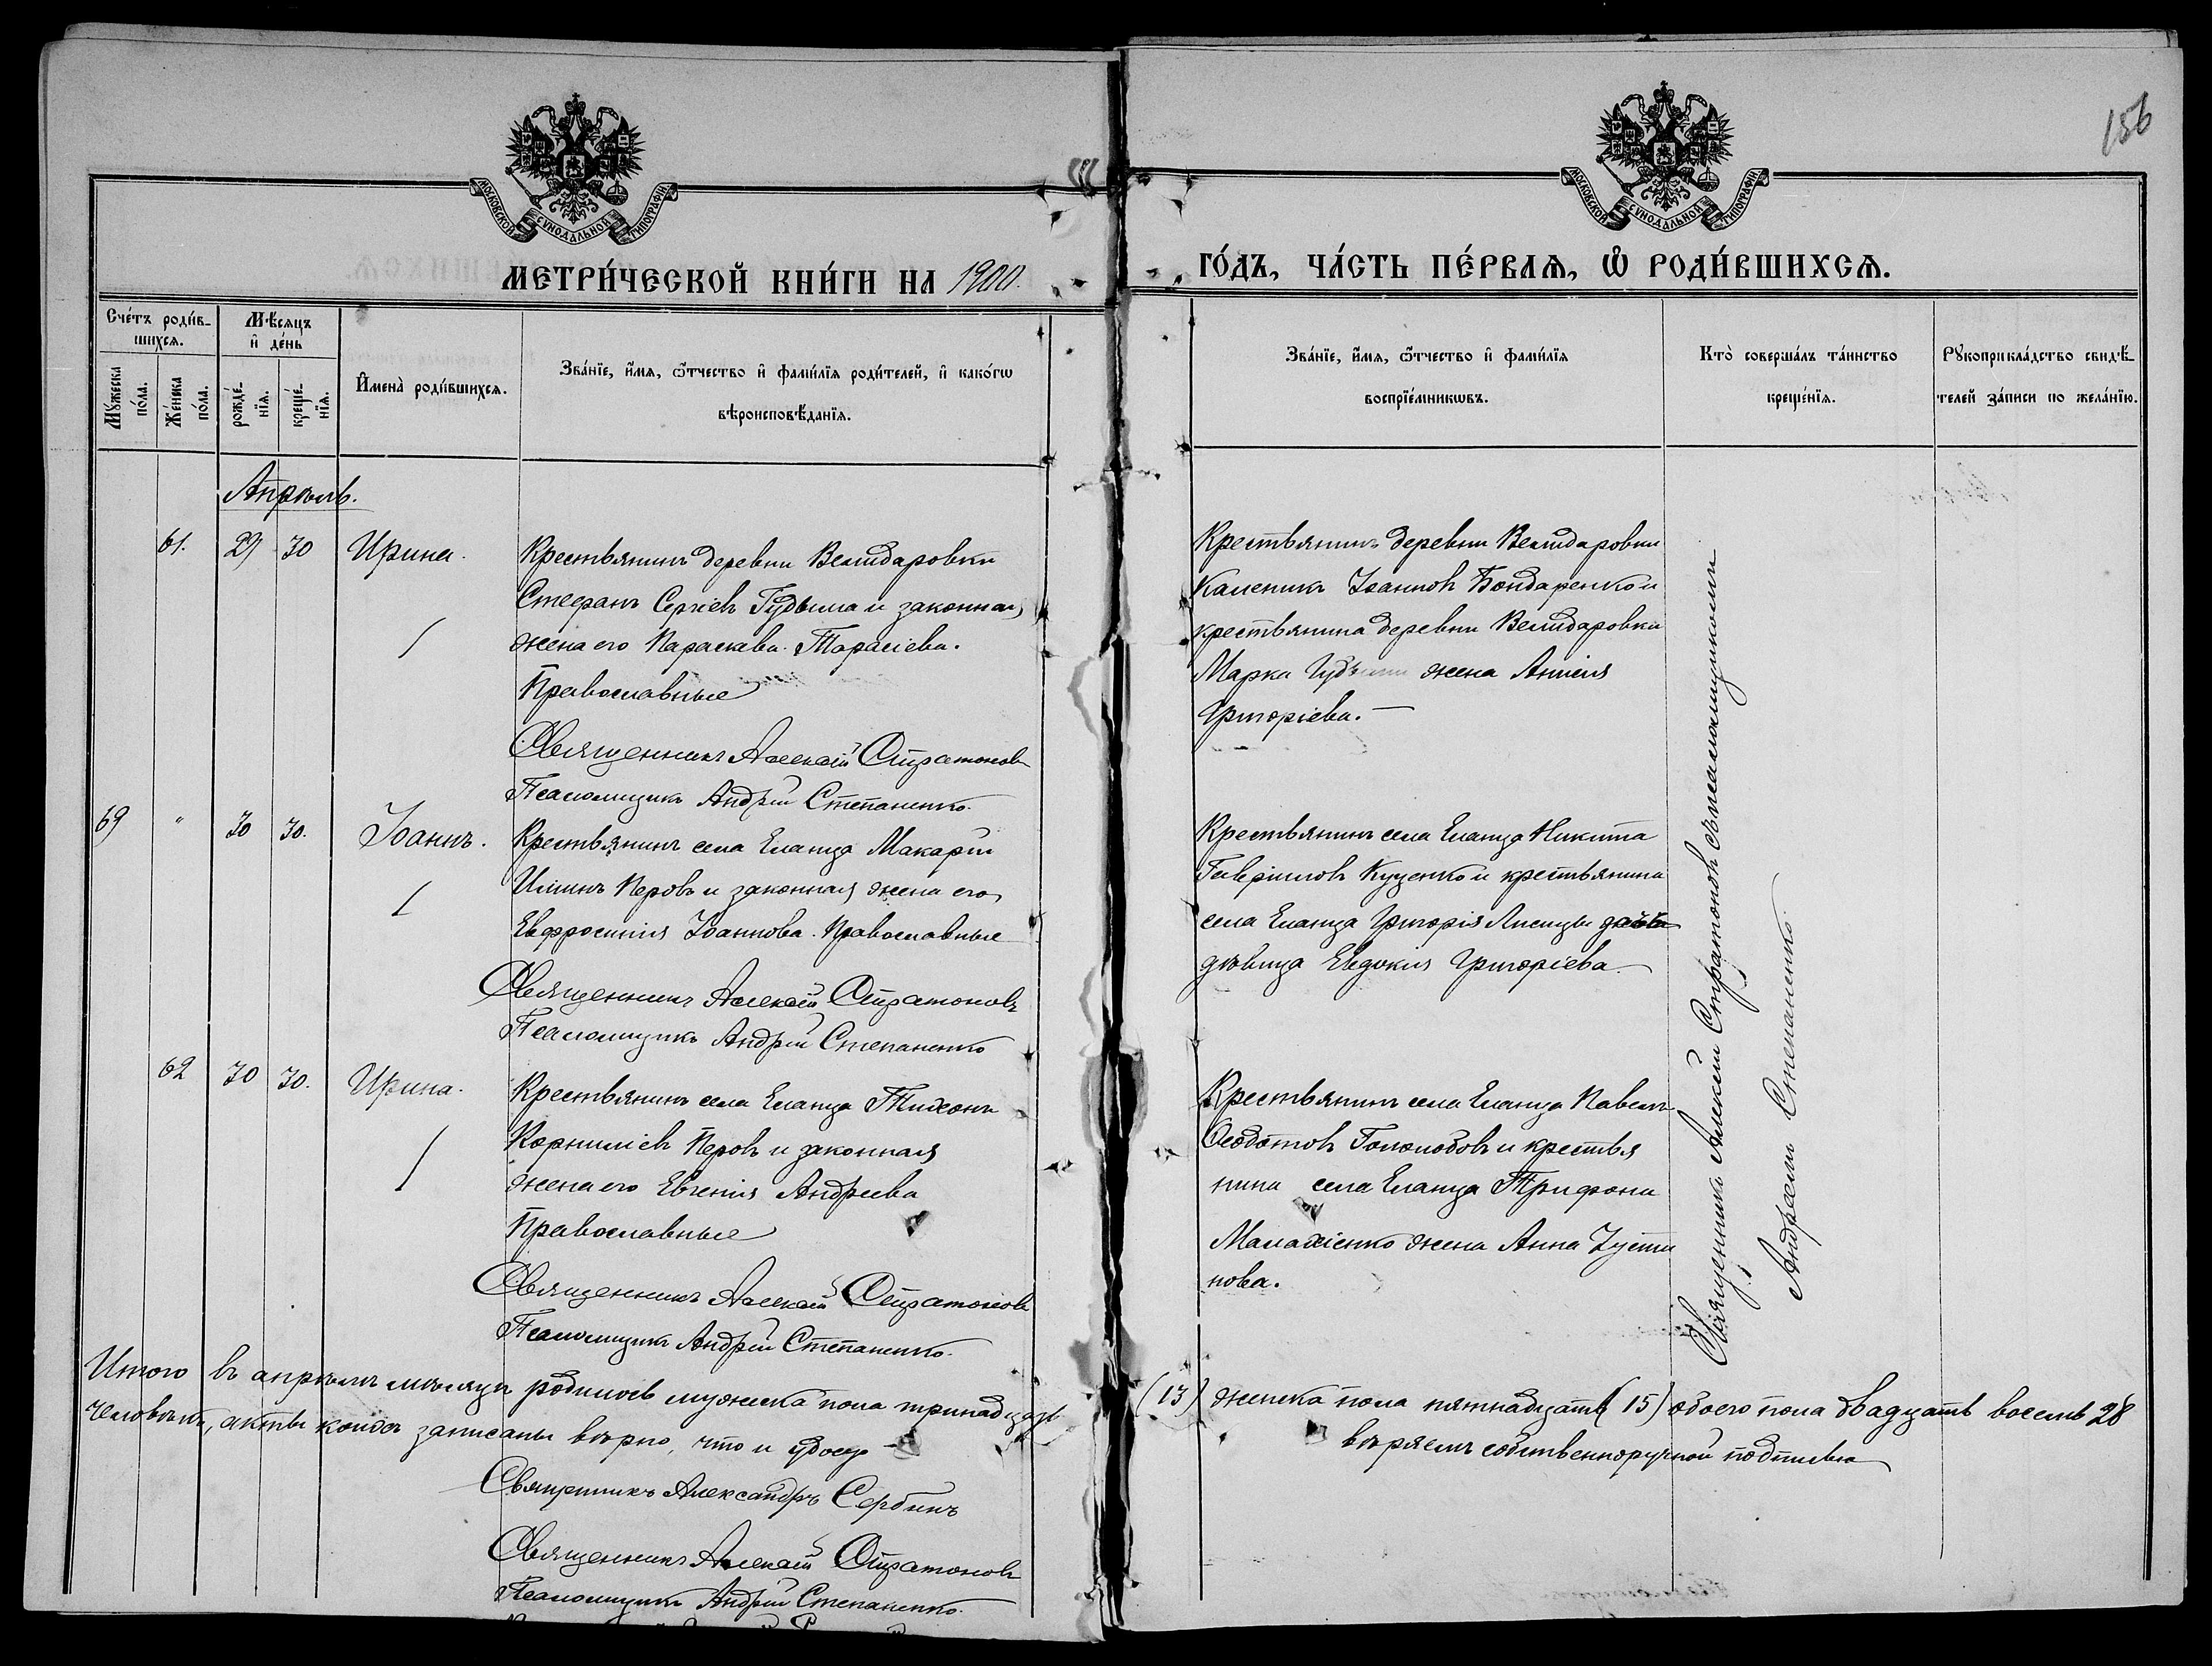 156
МОСКОВСКОЙ СѴНОДАЛЬНОЙ ТИПОГРАФІИ
МОСКОВСКОЙ СѴНОДАЛЬНОЙ ТИПОГРАФІИ
МЕТРИ́ЧЕСКОЙ КНИ́ГИ НА 1900.
ГО́ДЪ, ЧА́СТЬ ПЕ́РВАѦ, Ѡ҆ РОДИ́ВШИХСѦ.
Сче́тъ роди́в-
шихсѧ.
Му́жеска
по́ла.
Же́нска
по́ла.
Мѣ́сѧцъ
и҆ де́нь
рожде́-
нїѧ.
креще́-
нїѧ.
И҆мена̀ роди́вшихсѧ.
Зва́нїе, и҆́мѧ, ѻ҆́тчество и҆ фами́лїѧ роди́телей, и҆ како́гѡ
вѣроисповѣ́данїѧ.
Зва́нїе, и҆́мѧ, ѻ҆́тчество и҆ фами́лїѧ
воспрїе́мникѡвъ.
Кто̀ соверша́лъ та́инство
креще́нїѧ.
Рꙋкоприкла́дство свидѣ́-
телей за́писи по жела́нїю.
Апрѣль.
61. 29 30 Ирина.
Крестьянинъ деревни Велидаровки
Стефанъ Сергіевъ Гудыма и законная
жена его Параскева Тарасіева.
Православные
Священникъ Алексій Стратоновъ
Псаломщикъ Андрей Степаненко.
Крестьянинъ деревни Велидаровки
Каленикъ Іоанновъ Бондаренко и
крестьянина деревни Велидаровки
Марка жена Анисія
Григоріева.
69 " 30 30. Іоаннъ.
Крестьянинъ села Еланца Макарій
Илиинъ Перовъ и законная жена его
Евфросинія Іоаннова. Православные
Священникъ Алексій Стратоновъ
Псаломщикъ Андрей Степаненко
Крестьянинъ села Еланца Никита
Гавріиловъ Куценко и крестьянина
села Еланца Григорія Лисицы
дѣвица Евдокія Григоріева.
62 30 30. Ирина.
Крестьянинъ села Еланца Тихонъ
Корниліевъ Перовъ и законная
жена его Евгенія Андреева
Православные
Священникъ Алексій Стратоновъ
Псаломщикъ Андрей Степаненко.
Крестьянинъ села Еланца Павелъ
Ѳеодотовъ Гололобовъ и крестья
нина села Еланца Трифона
Малахіенко жена Анна Іусти
нова.
Священникъ Алексій Стратоновъ съ псаломщикомъ
Андреемъ Степаненко.
Итого въ апрѣлѣ мѣсяцѣ родилось мужеска пола тринадцать (13) женска пола пятнадцать (15) обоего пола двадцать восемь 28
человѣкъ, акты коихъ записаны вѣрно, что и удосто-вѣряемъ собственноручной подписью
Священникъ Александръ Сербинъ
Священникъ Алексій Стратоновъ
Псаломщикъ Андрей Степаненко.